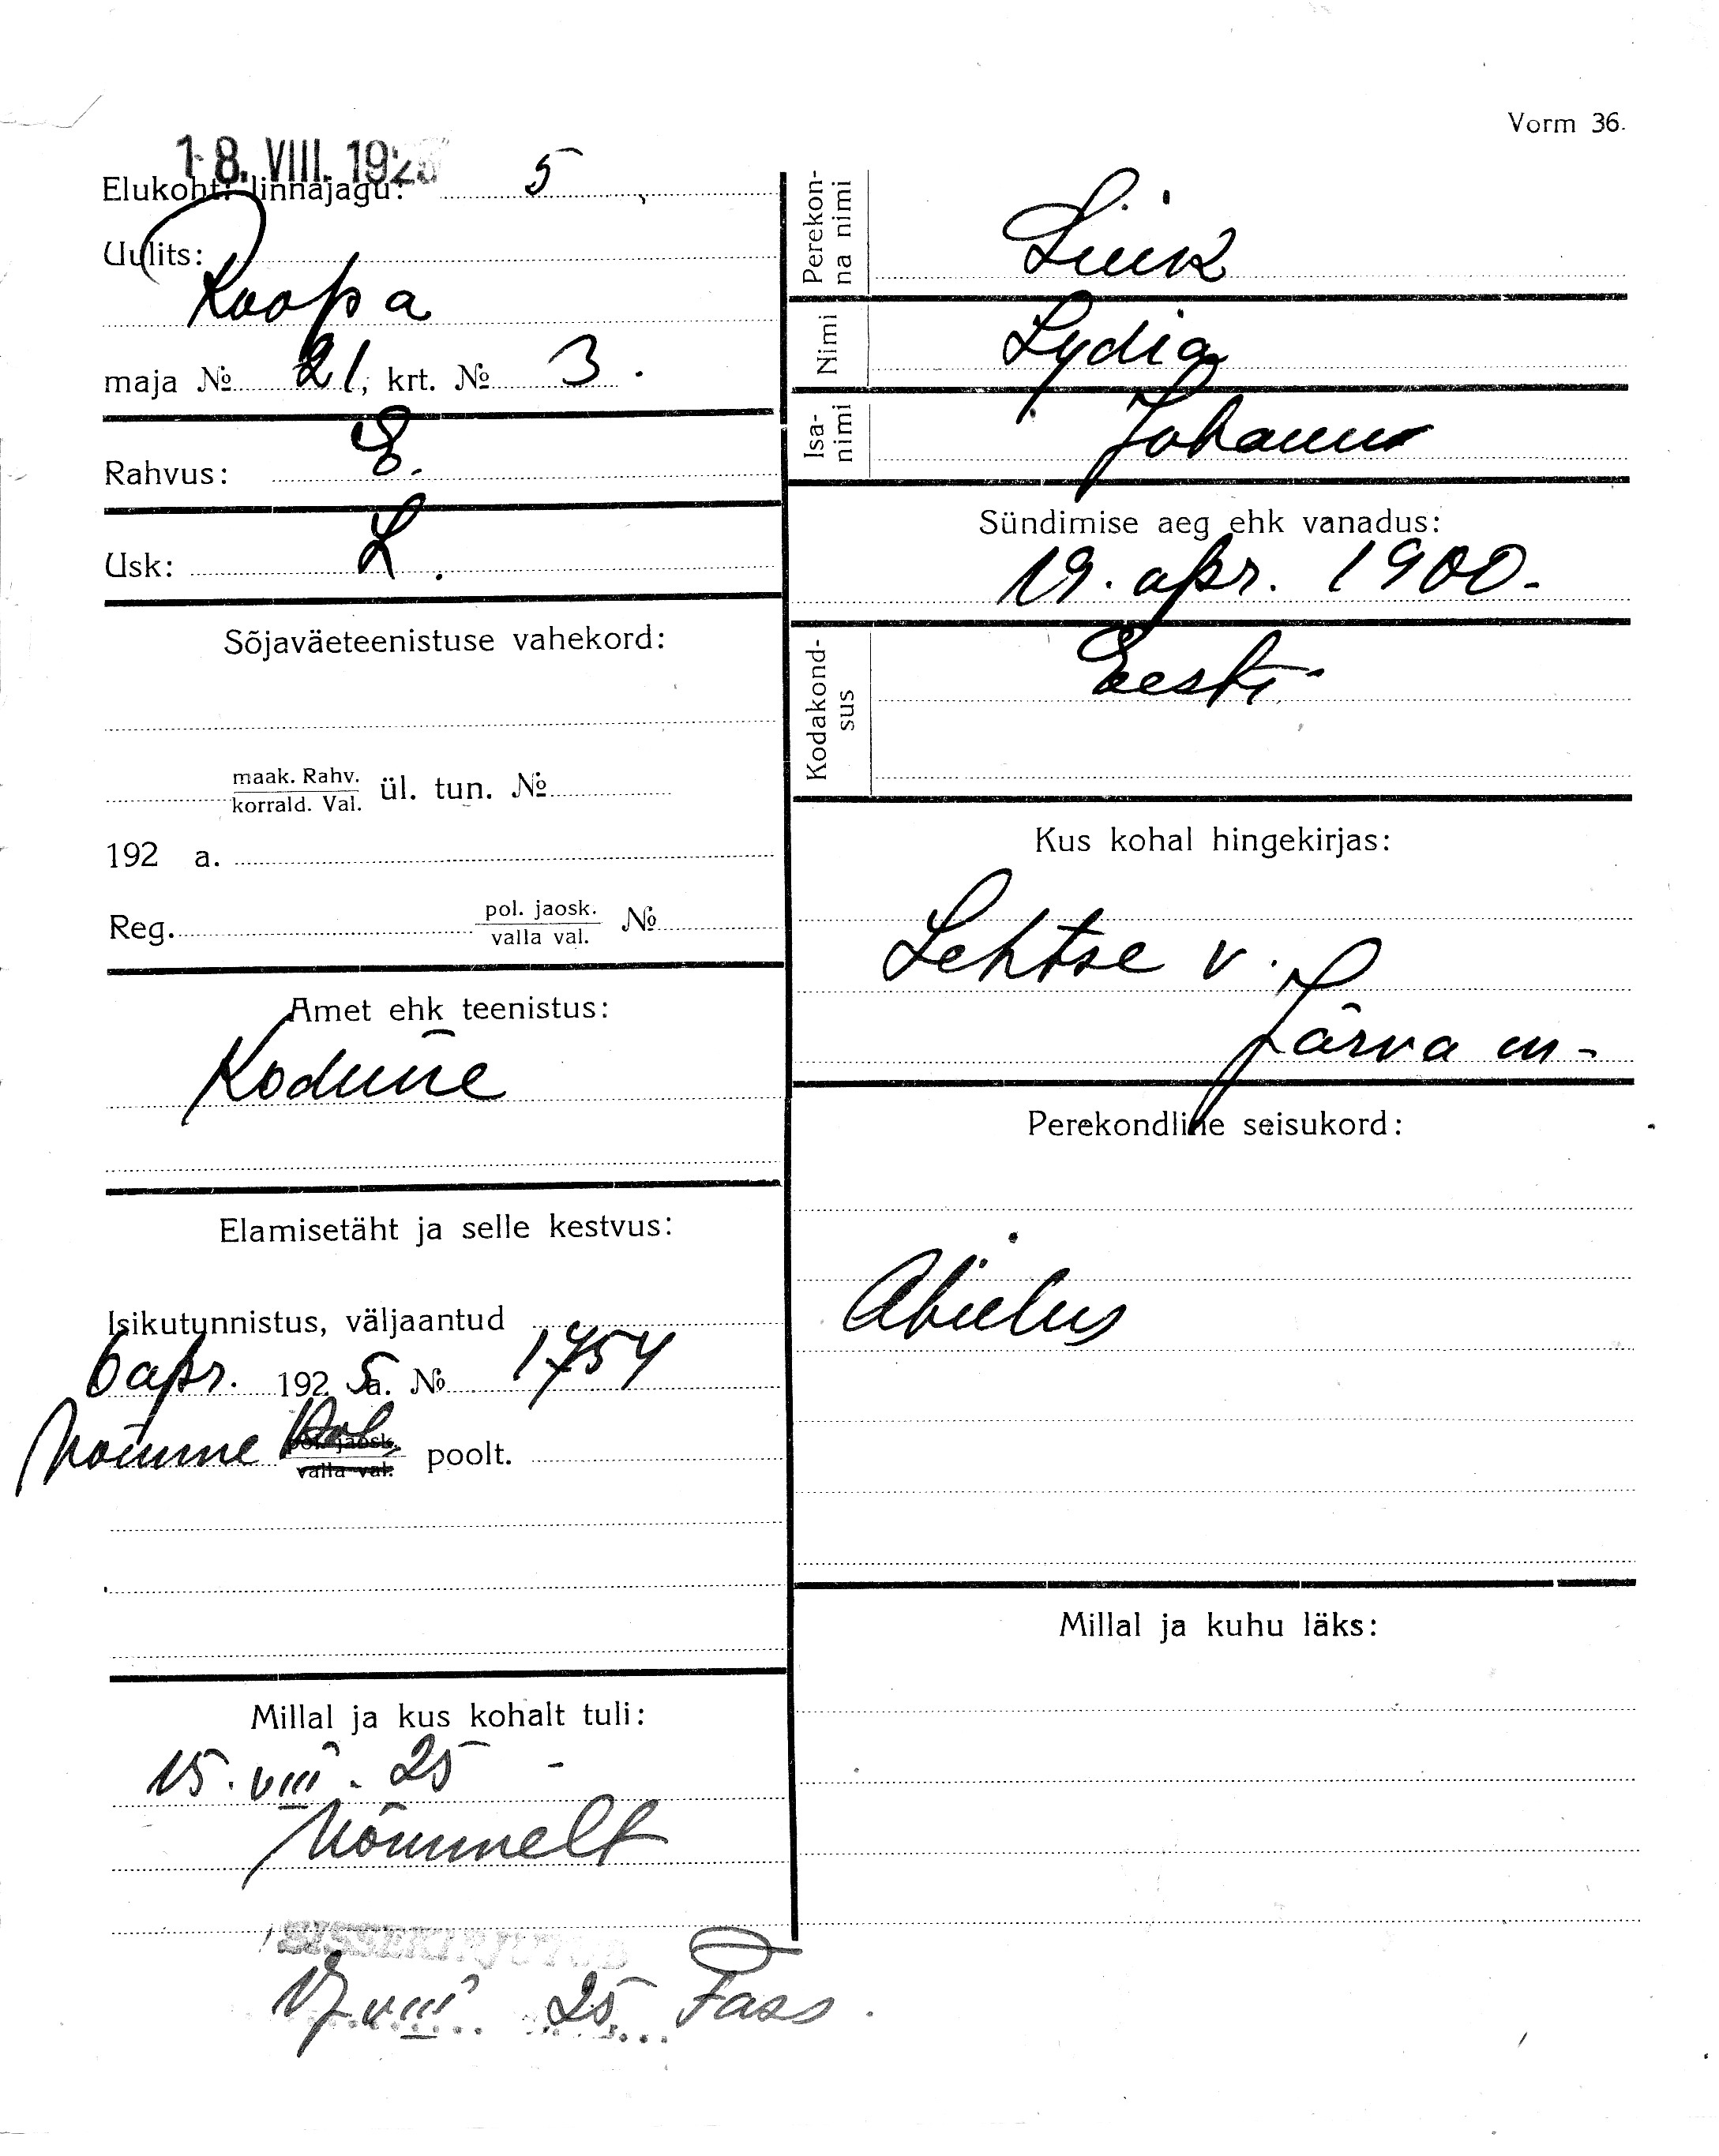 Vorm 36.
18. VIII. 1925
Elukoht: linnajagu: 5
Uulits:
Roopa
maja № 21, krt. № 3.
Rahvus: E.
Usk: L.
Sõjaväeteenistuse vahekord:
maak. Rahv.
korrald. Val. ül. tun. №
192 a.
Reg. pol. jaosk. №
valla val.
Amet ehk teenistus:
Kodune
Elamisetäht ja selle kestvus:
Isikutunnistus, väljaantud
6 apr. 1925 a. № 1754
Nõmme pol. jaosk. poolt.
valla val.
Millal ja kus kohalt tuli:
15. VIII. 25 -
Nõmmelt
SISSEKIRJUTUD
17 VIII 25. Fass.
Perekon-
na nimi
Liiik
Nimi Lydia
Isa-
nimi Johann
Sündimise aeg ehk vanadus:
19. apr. 1900.
Kodakond-
sus Eesti
Kus kohal hingekirjas:
Lehtse v.
Järva m-
Perekondline seisukord:
Abielus
Millal ja kuhu läks: